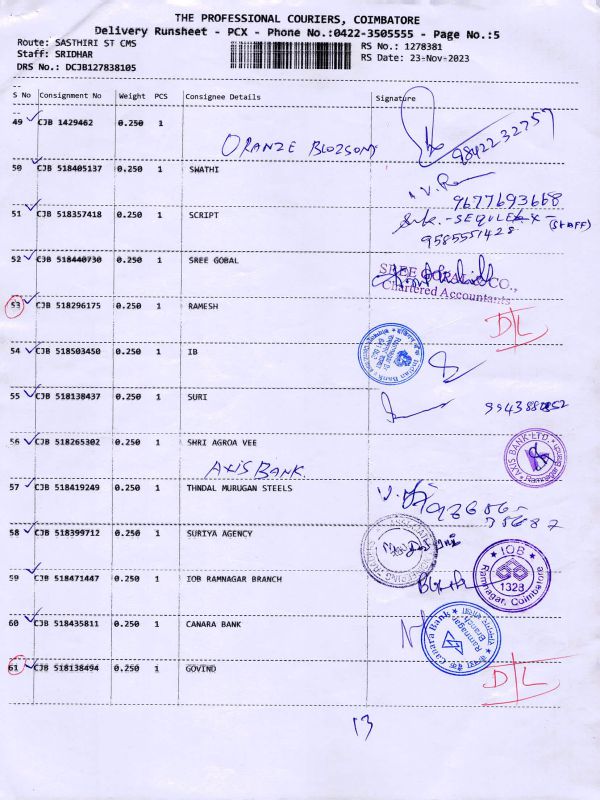 THE PROFESSIONAL COURIERS, COIMBATORE
Delivery Runsheet - PCX - Phone No.:0422-3505555 - Page No.:5
Route: SASTHIRI ST CMS
Staff: SRIDHAR
DRS No.: DCJB127838105
RS No.: 1278381
RS Date: 23-Nov-2023
S No Consignment No Weight PCS Consignee Details Signature
49 CJB 1429462 0.250 1
ORANZE BLOZSOMS 9842232757
50 CJB 518405137 0.250 1 SWATHI
9677693668
51 CJB 518357418 0.250 1 SCRIPT (STAFF)
9585551428
52 CJB 518440730 0.250 1 SREE GOBAL
SREE CO.,
Chartered Accountants
53 CJB 518296175 0.250 1 RAMESH
D/L
54 CJB 518503450 0.250 1 IB
Indian Bank
55 CJB 518138437 0.250 1 SURI
56 CJB 518265302 0.250 1 SHRI AGROA VEE
AXIS BANK.
AXIS BANK LTD. Ramnagar Branch
57 CJB 518419249 0.250 1 THNDAL MURUGAN STEELS
58 CJB 518399712 0.250 1 SURIYA AGENCY
59 CJB 518471447 0.250 1 IOB RAMNAGAR BRANCH
IOB 1328 Ramnagar, Coimbatore
60 CJB 518435811 0.250 1 CANARA BANK
Canara Bank Ramnagar Branch
61 CJB 518138494 0.250 1 GOVIND
D/L
13